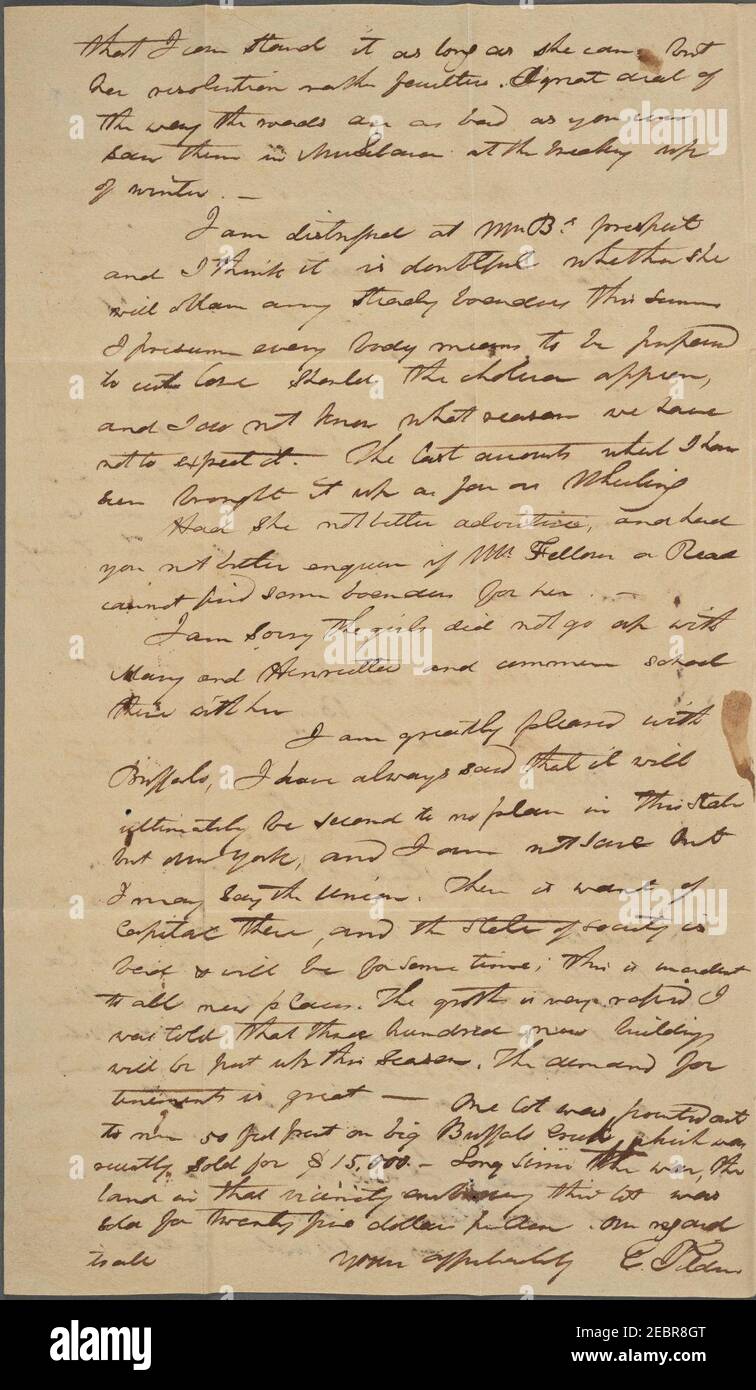 that I can stand it as long as she can, but
her resolution rather faulters. A great deal of
the way the roads are as bad as you ever
saw them in at the breaking up
of winter. —
I am distressed at Mrs Bs prospect
and I think it is doubtful whether she
will obtain any steady boarders this summer
I presume every body means to be prepared
to cut loose should the cholera appear,
and I do not know what reason we have
not to expect it. The last accounts which I have
seen brought it up as far as Wheeling
Had she not better advertise, and had
you not better enquire if Mr. Fellows or Read
cannot find some boarders for her. —
I am sorry the girls did not go up with
Mary and Henrietta and commence school
there with her
I am greatly pleased with
Buffalo, I have always said that it will
ultimately be second to no place in this State
but New York, and I am not sure but
I may say the Union. There is want of
Capital there, and the state of society is
bad & will be for some time; this is incident
to all new places. The growth is very rapid I
was told that three hundred new buildings
will be put up this season. The demand for
tenements is great — One lot was pointed out
to me 50 feet front on big Buffalo Creek, which was
recently sold for $15,000. — Long since the war, the
land in that vicinity embracing this lot was
sold for twenty five dollars per acre. My regard
to all
Yours affectionately C.
alamy
Image ID: 2EBR8GT
www.alamy.com